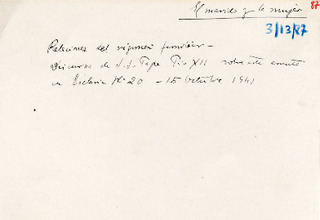 El marido y la mujer
87
3/13/87
Relaciones del régimen familiar -
Discurso de S.S. Papa Pio XII sobre este asunto
en Ecclesia Nº 20 - 15 Octubre 1941